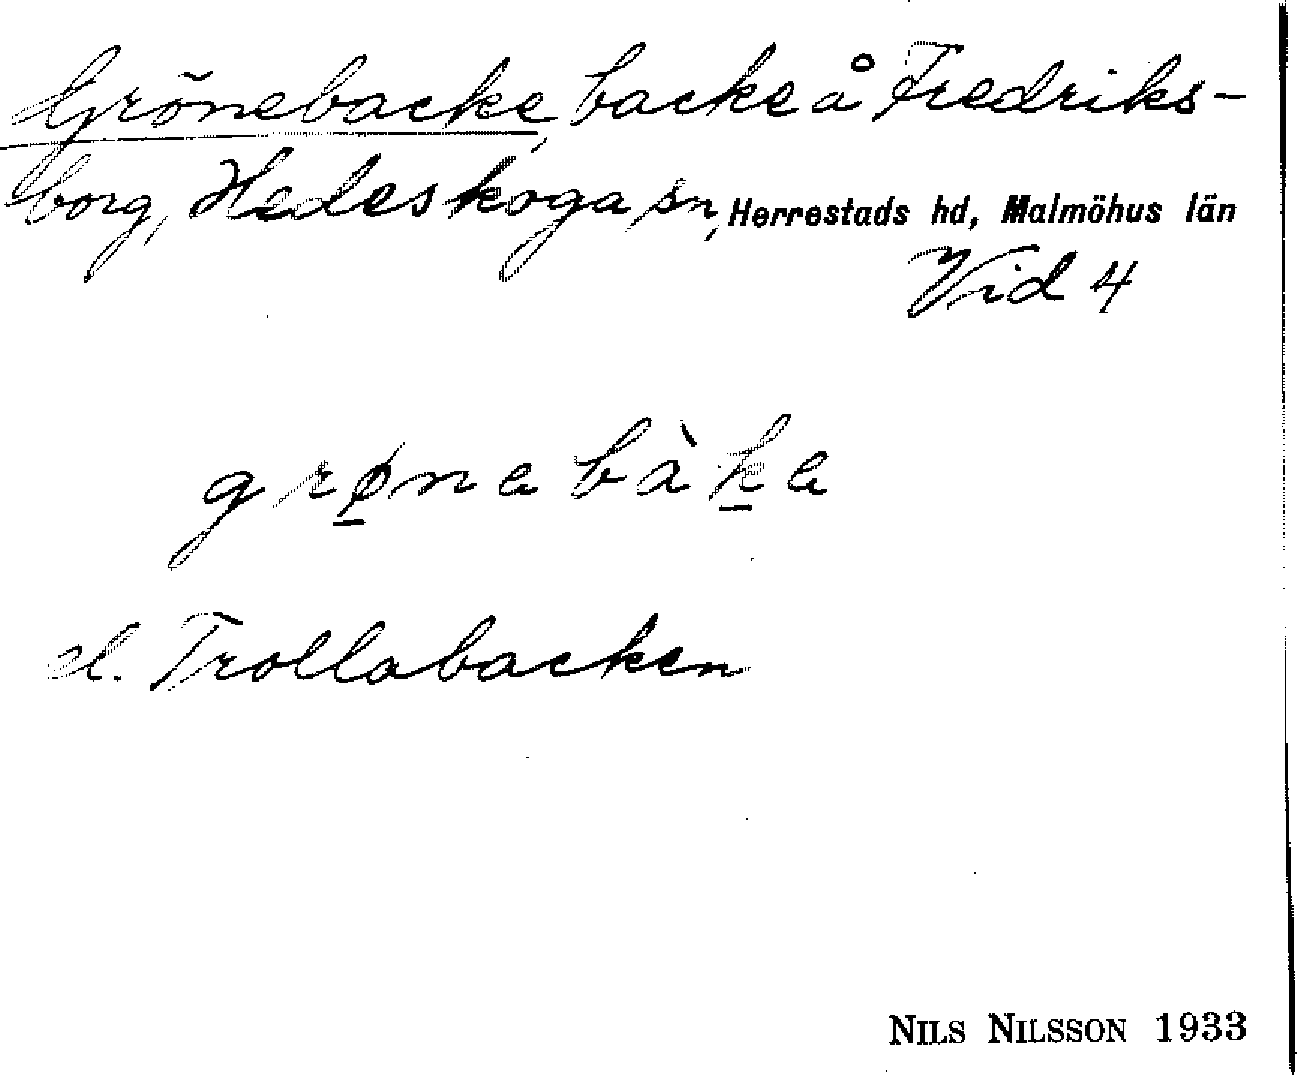 Grönebacke, backe å Fredriks-
borg, Hedeskoga sn, Herrestads hd, Malmöhus län
Vid 4
grø̱nabàḵa
el. Trollabacken
NILS NILSSON 1933